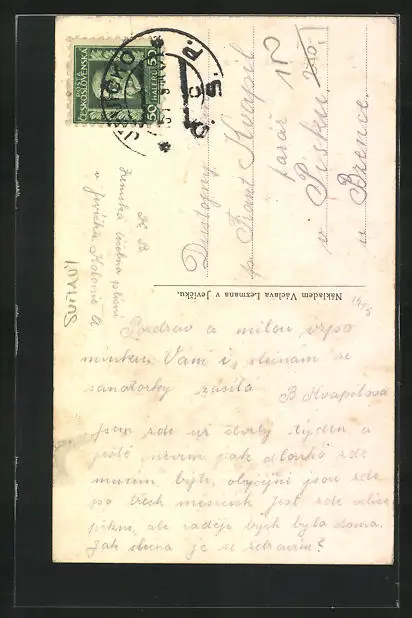 ČESKOSLOVENSKÁ
50 HALÉŘŮ 50
JEVÍČKO
Důstojný pán
p. Frant Kvapil
farář
v Písku
u Bzence.
Nákladem Václava Lexmana v Jevíčku.
Zemská léčebna plicní
v Jevíčku
Pozdrav a milou vzpo
mínku Vám i slečnám ze
sanatorky zasílá
B Kvapilová
Jsem zde už čtvrtý týden a
ještě nevím jak dlouho zde
musím být, obyčejně jsou zde
po třech měsících. Jest zde velice
pěkně, ale raději bych byla doma.
Jak slečna je se zdravím?